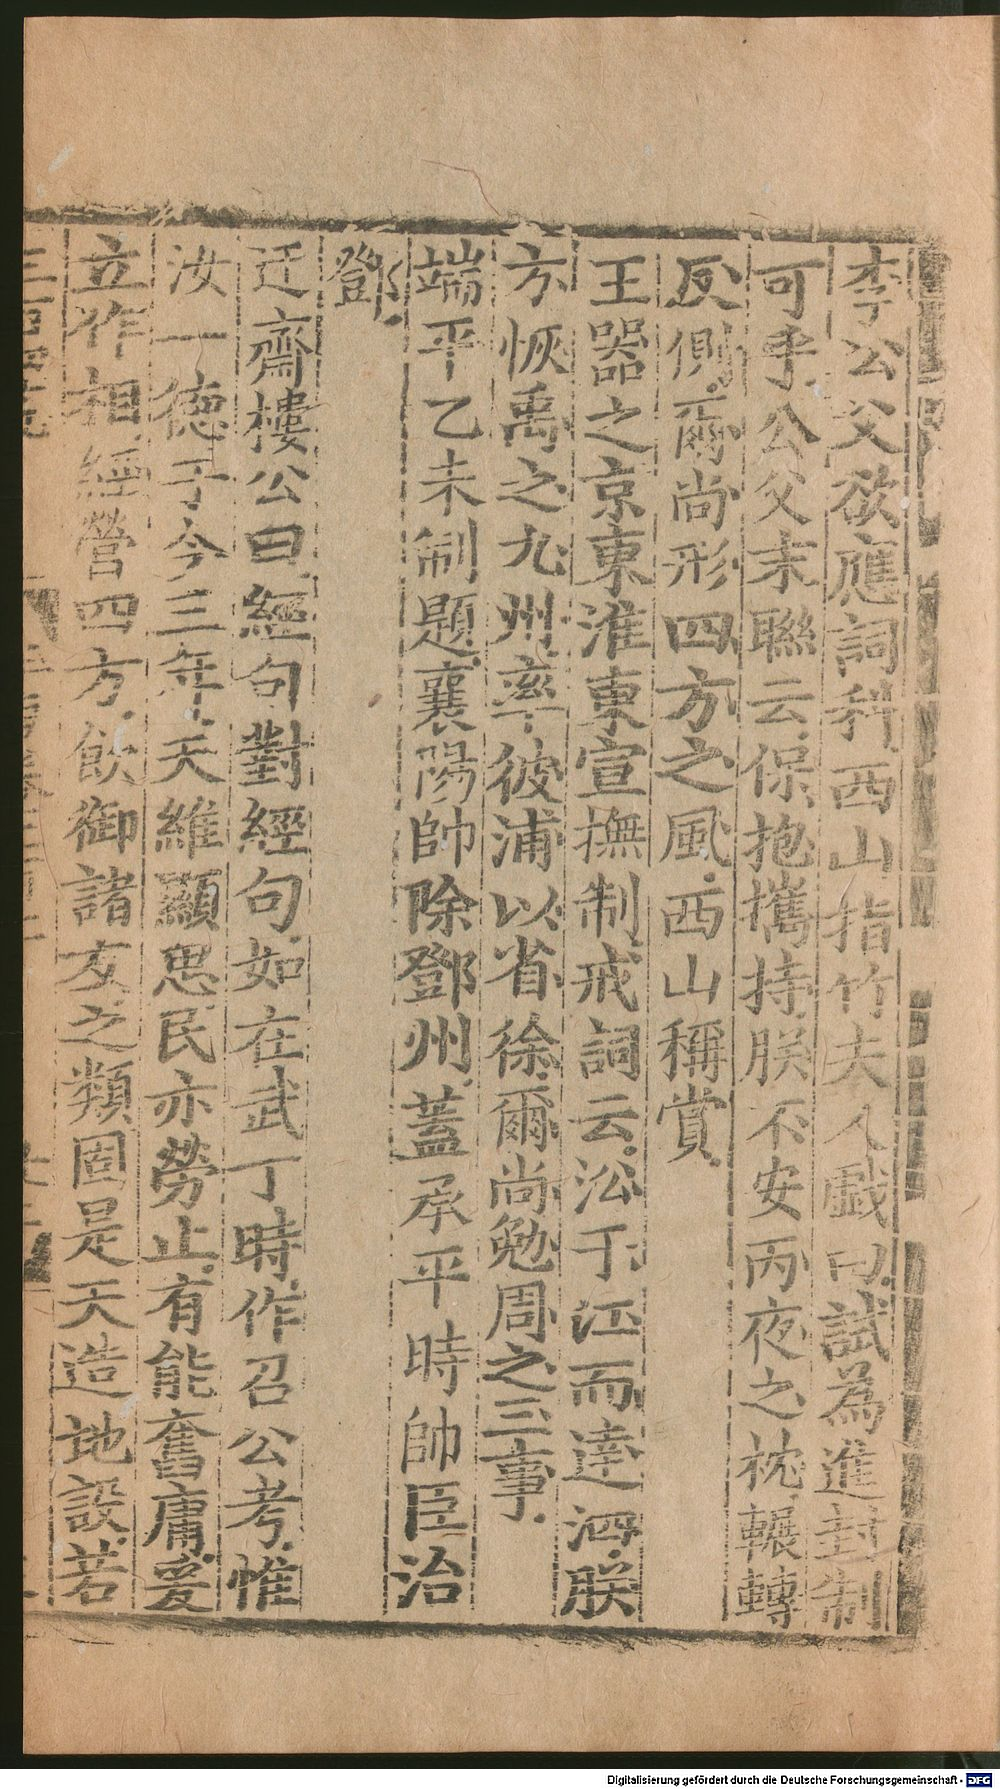 李公父欲應詞科西山指竹夫人戲曰試為進封制
可乎公父末聯云保抱攜持朕不安丙夜之枕輾轉
反側爾尚形四方之風西山稱賞
王器之京東淮東宣撫制戒詞云㳂于江而達泗朕
方恢禹之九州率彼浦以省徐爾尚勉周之三事
端平乙未制題襄陽帥除鄧州蓋承平時帥臣治
鄧
迂齋樓公曰經句對經句如在武丁時作召公考惟
汝一德于今三年天維顯思民亦勞止有能奮庸爰
立作相經營四方飲御諸友之類固是天造地設若
Digitalisierung gefördert durch die Deutsche Forschungsgemeinschaft - DFG